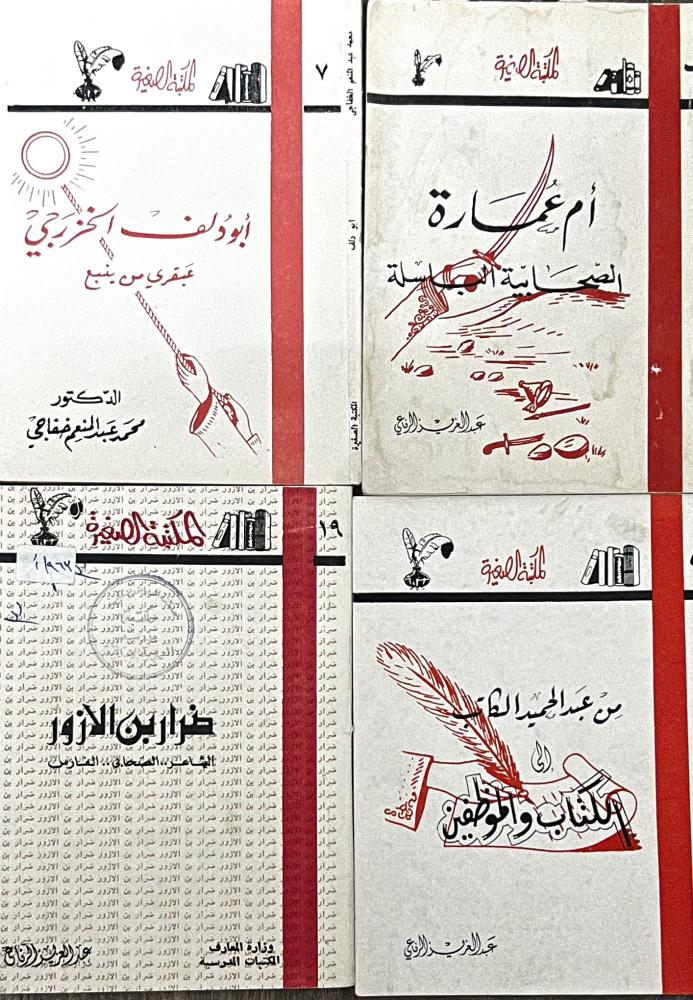 المكتبة الصغيرة
٧
أبو دلف الخزرجي
عبقري من ينبع
الدكتور
محمد عبد المنعم خفاجي
محمد عبد المنعم الخفاجي
ابو دلف
المكتبة الصغيرة
المكتبة الصغيرة
أم عُمارة
الصحابية الباسلة
عبد العزيز الرفاعي
المكتبة الصغيرة
١٩
ضرار بن الأزور
الشاعر.. الصحابي.. الفارس
عبد العزيز الرفاعي
وزارة المعارف
المكتبات المدرسية
المكتبة الصغيرة
من عبد الحميد الكاتب
إلى
الكتاب والموظفين
عبد العزيز الرفاعي